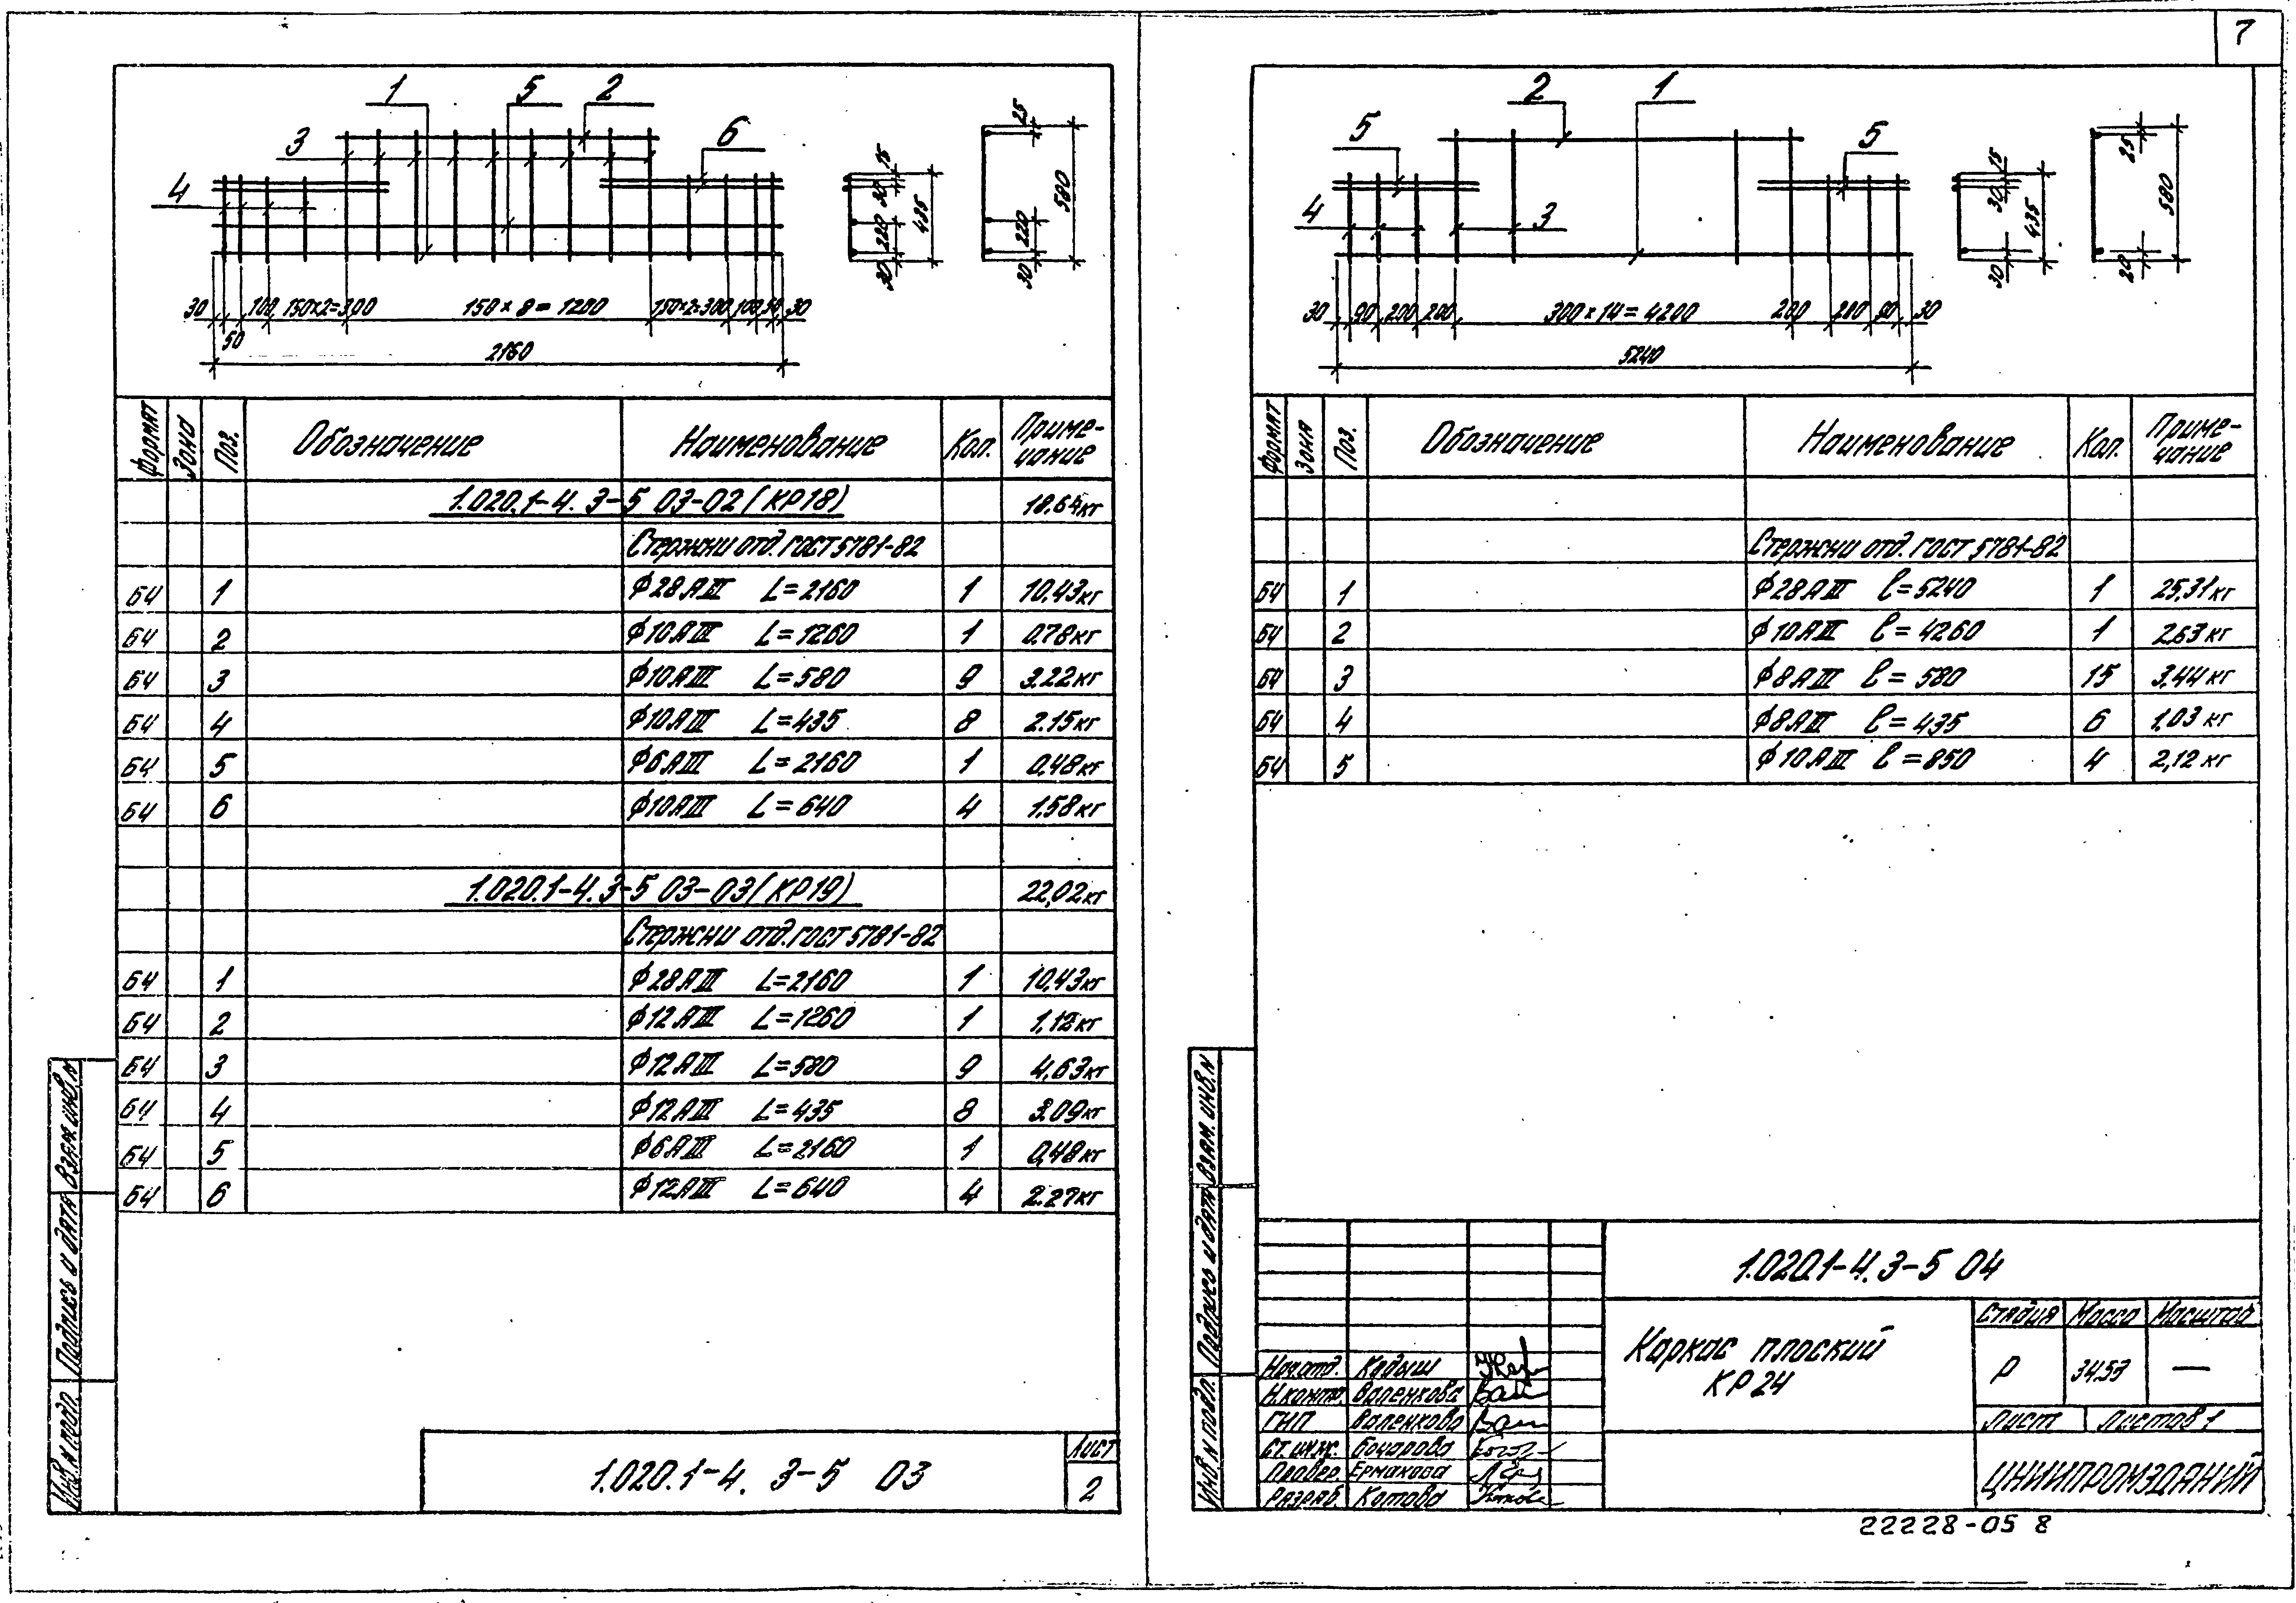 7
1 5 2
3 6
4
30 50 100 150×2=300 150×8=1200 150×2=300 100 50 30
2160
15 30 220 30 435
25 220 30 580
Формат Зона Поз. Обозначение Наименование Кол. Приме-
чание
1.020.1-4. 3-5 03-02 (КР18) 18.64кг
Стержни отд. ГОСТ 5781-82
БЧ 1 ϕ28АIII L=2160 1 10,43кг
БЧ 2 ϕ10АIII L=1260 1 0,78кг
БЧ 3 ϕ10АIII L=580 9 3.22кг
БЧ 4 ϕ10АIII L=435 8 2.15кг
БЧ 5 ϕ6АIII L=2160 1 0,48кг
БЧ 6 ϕ10АIII L=640 4 1,58кг
1.020.1-4.3-5 03-03 (КР19) 22,02кг
Стержни отд. ГОСТ 5781-82
БЧ 1 ϕ28АIII L=2160 1 10,43кг
БЧ 2 ϕ12АIII L=1260 1 1,12кг
БЧ 3 ϕ12АIII L=580 9 4,63кг
БЧ 4 ϕ12АIII L=435 8 3.09кг
БЧ 5 ϕ6АIII L=2160 1 0,48кг
БЧ 6 ϕ12АIII L=640 4 2.27кг
Инв. N подл. Подпись и дата Взам. инв. N
1.020.1-4. 3-5 03
Лист
2
2 1
5 5
4 3
30 90 200 200 300×14=4200 200 200 90 30
5240
15 30 30 435
25 20 580
Формат Зона Поз. Обозначение Наименование Кол. Приме-
чание
Стержни отд. ГОСТ 5781-82
БЧ 1 ϕ28АIII ℓ=5240 1 25,31кг
БЧ 2 ϕ10АIII ℓ=4260 1 2,63кг
БЧ 3 ϕ8АIII ℓ=580 15 3,44кг
БЧ 4 ϕ8АIII ℓ=435 6 1,03кг
БЧ 5 ϕ10АIII ℓ=850 4 2,12кг
Инв. N подл. Подпись и дата Взам. инв. N
1.020.1-4. 3-5 04
Каркас плоский
КР24
Стадия Масса Масштаб
Р 34.53 —
Лист Листов 1
ЦНИИПРОМЗДАНИЙ
Нач.отд. Кодыш
Н.контр. Валенкова
ГИП Валенкова
Ст.инж. Бочарова
Провер. Ермакова
Разраб. Котова
22228-05 8